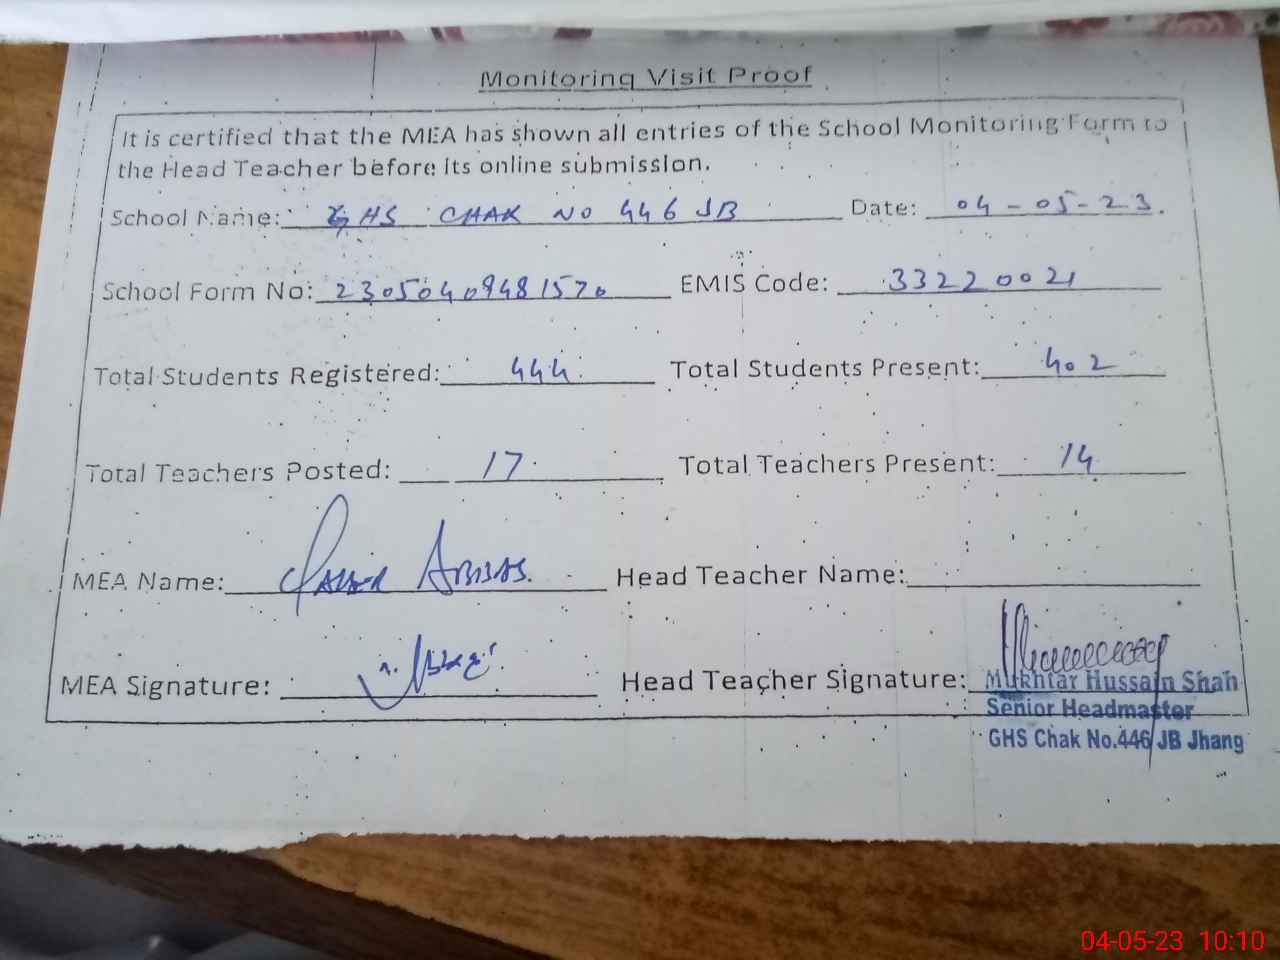 Monitoring Visit Proof
It is certified that the MEA has shown all entries of the School Monitoring Form to
the Head Teacher before its online submission.
School Name: GHS CHAK NO 446 JB Date: 04-05-23.
School Form No: 23050409481570 EMIS Code: 33220021
Total Students Registered: 444 Total Students Present: 402
Total Teachers Posted: 17 Total Teachers Present: 14
MEA Name: QAISER ABBAS. Head Teacher Name:
MEA Signature: Head Teacher Signature: Mukhtar Hussain Shah
Senior Headmaster
GHS Chak No.446 JB Jhang
04-05-23 10:10